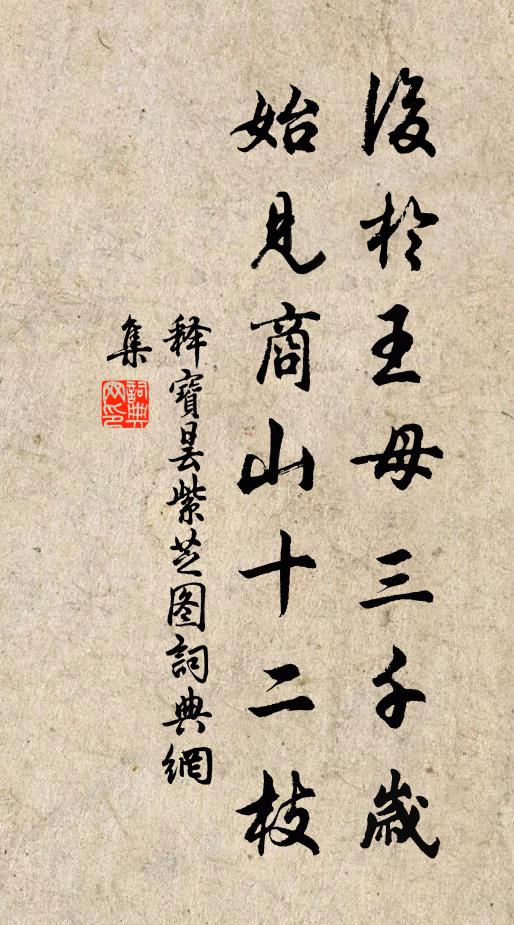 後於王母三千歲
始見商山十二枝
释寶曇紫芝图詞典網
集
詞典網印